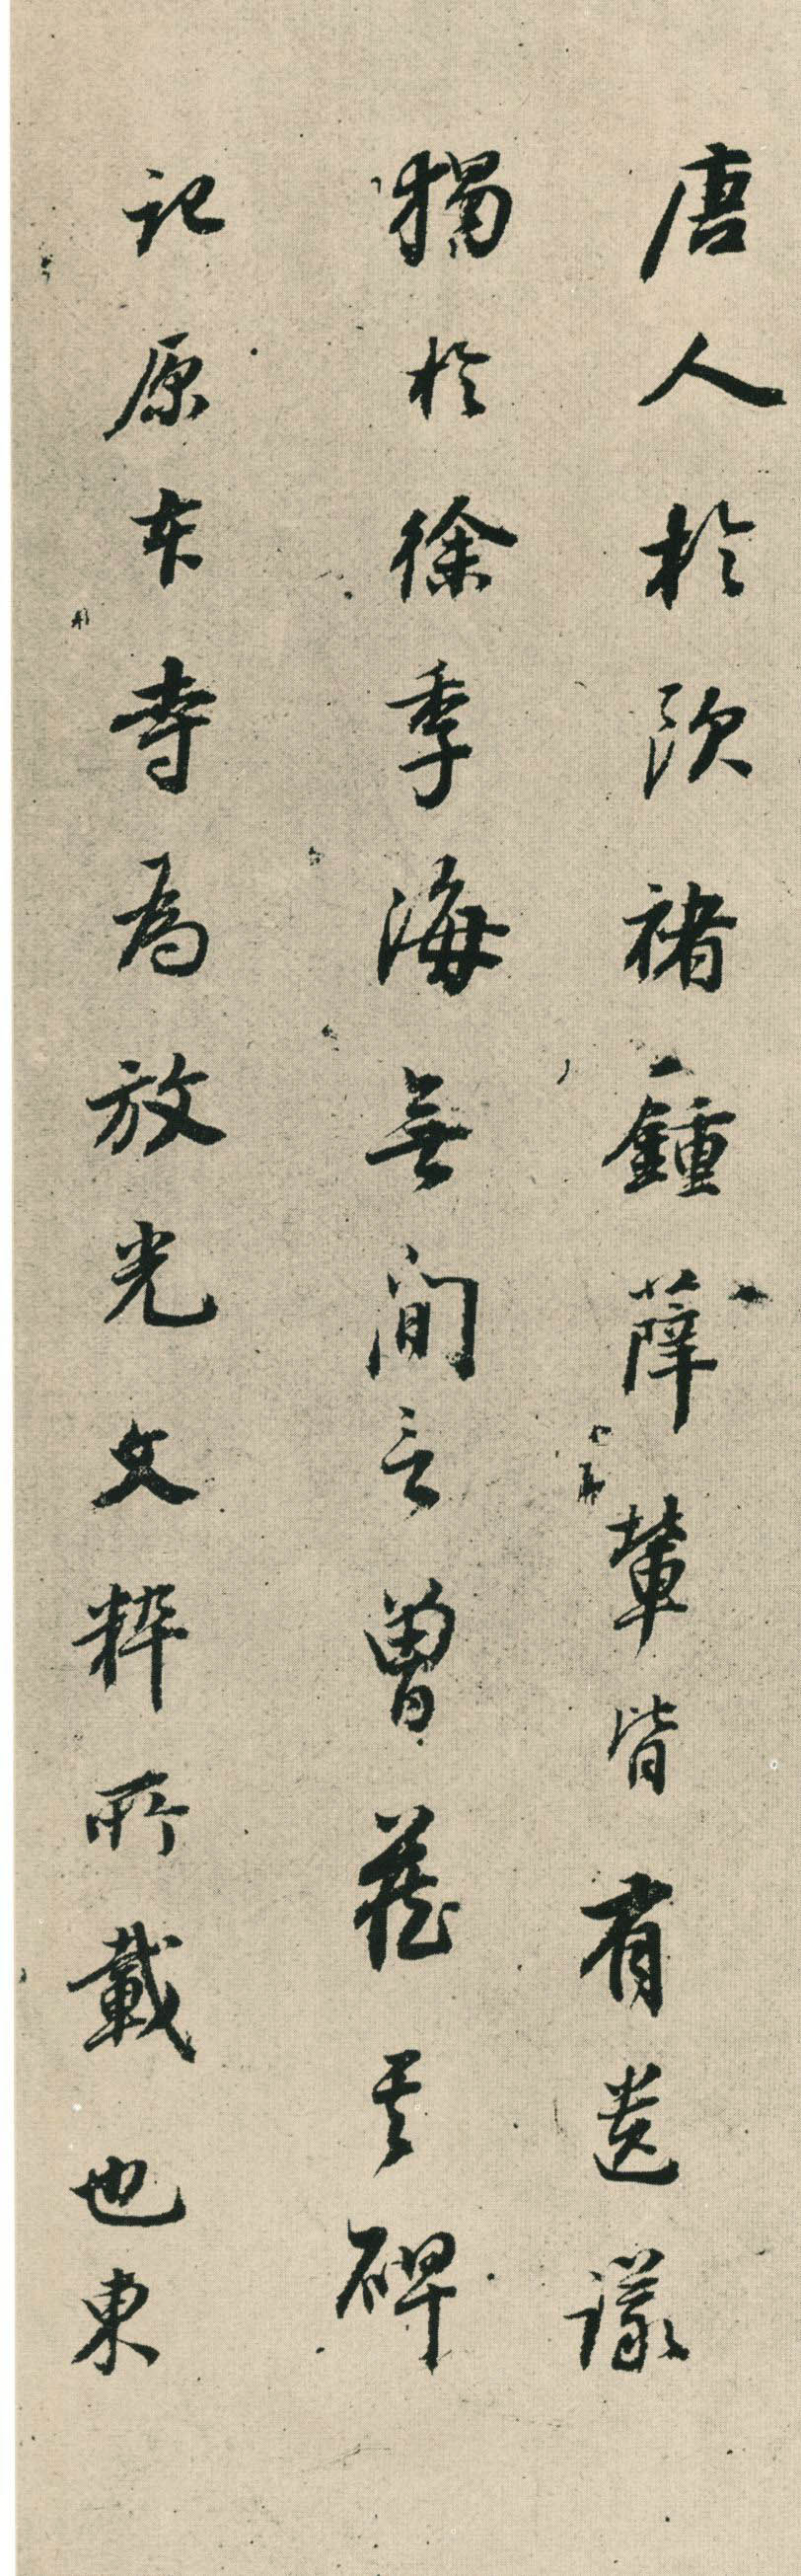 唐人於歐褚鍾薛輩皆有遺議
獨於徐季海無間言曾藏其碑
記原本寺為放光文粹所載也東